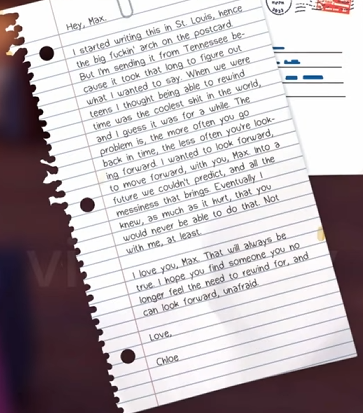 Hey, Max.
I started writing this in St. Louis, hence
the big fuckin' arch on the postcard.
But I'm sending it from Tennessee be-
cause it took that long to figure out
what I wanted to say. When we were
teens I thought being able to rewind
time was the coolest shit in the world,
and I guess it was for a while. The
problem is, the more often you go
back in time, the less often you're look-
ing forward. I wanted to look forward,
to move forward, with you, Max. Into a
future we couldn't predict, and all the
messiness that brings. Eventually I
knew, as much as it hurt, that you
would never be able to do that. Not
with me, at least.
I love you, Max. That will always be
true. I hope you find someone you no
longer feel the need to rewind for, and
can look forward, unafraid.
Love,
Chloe